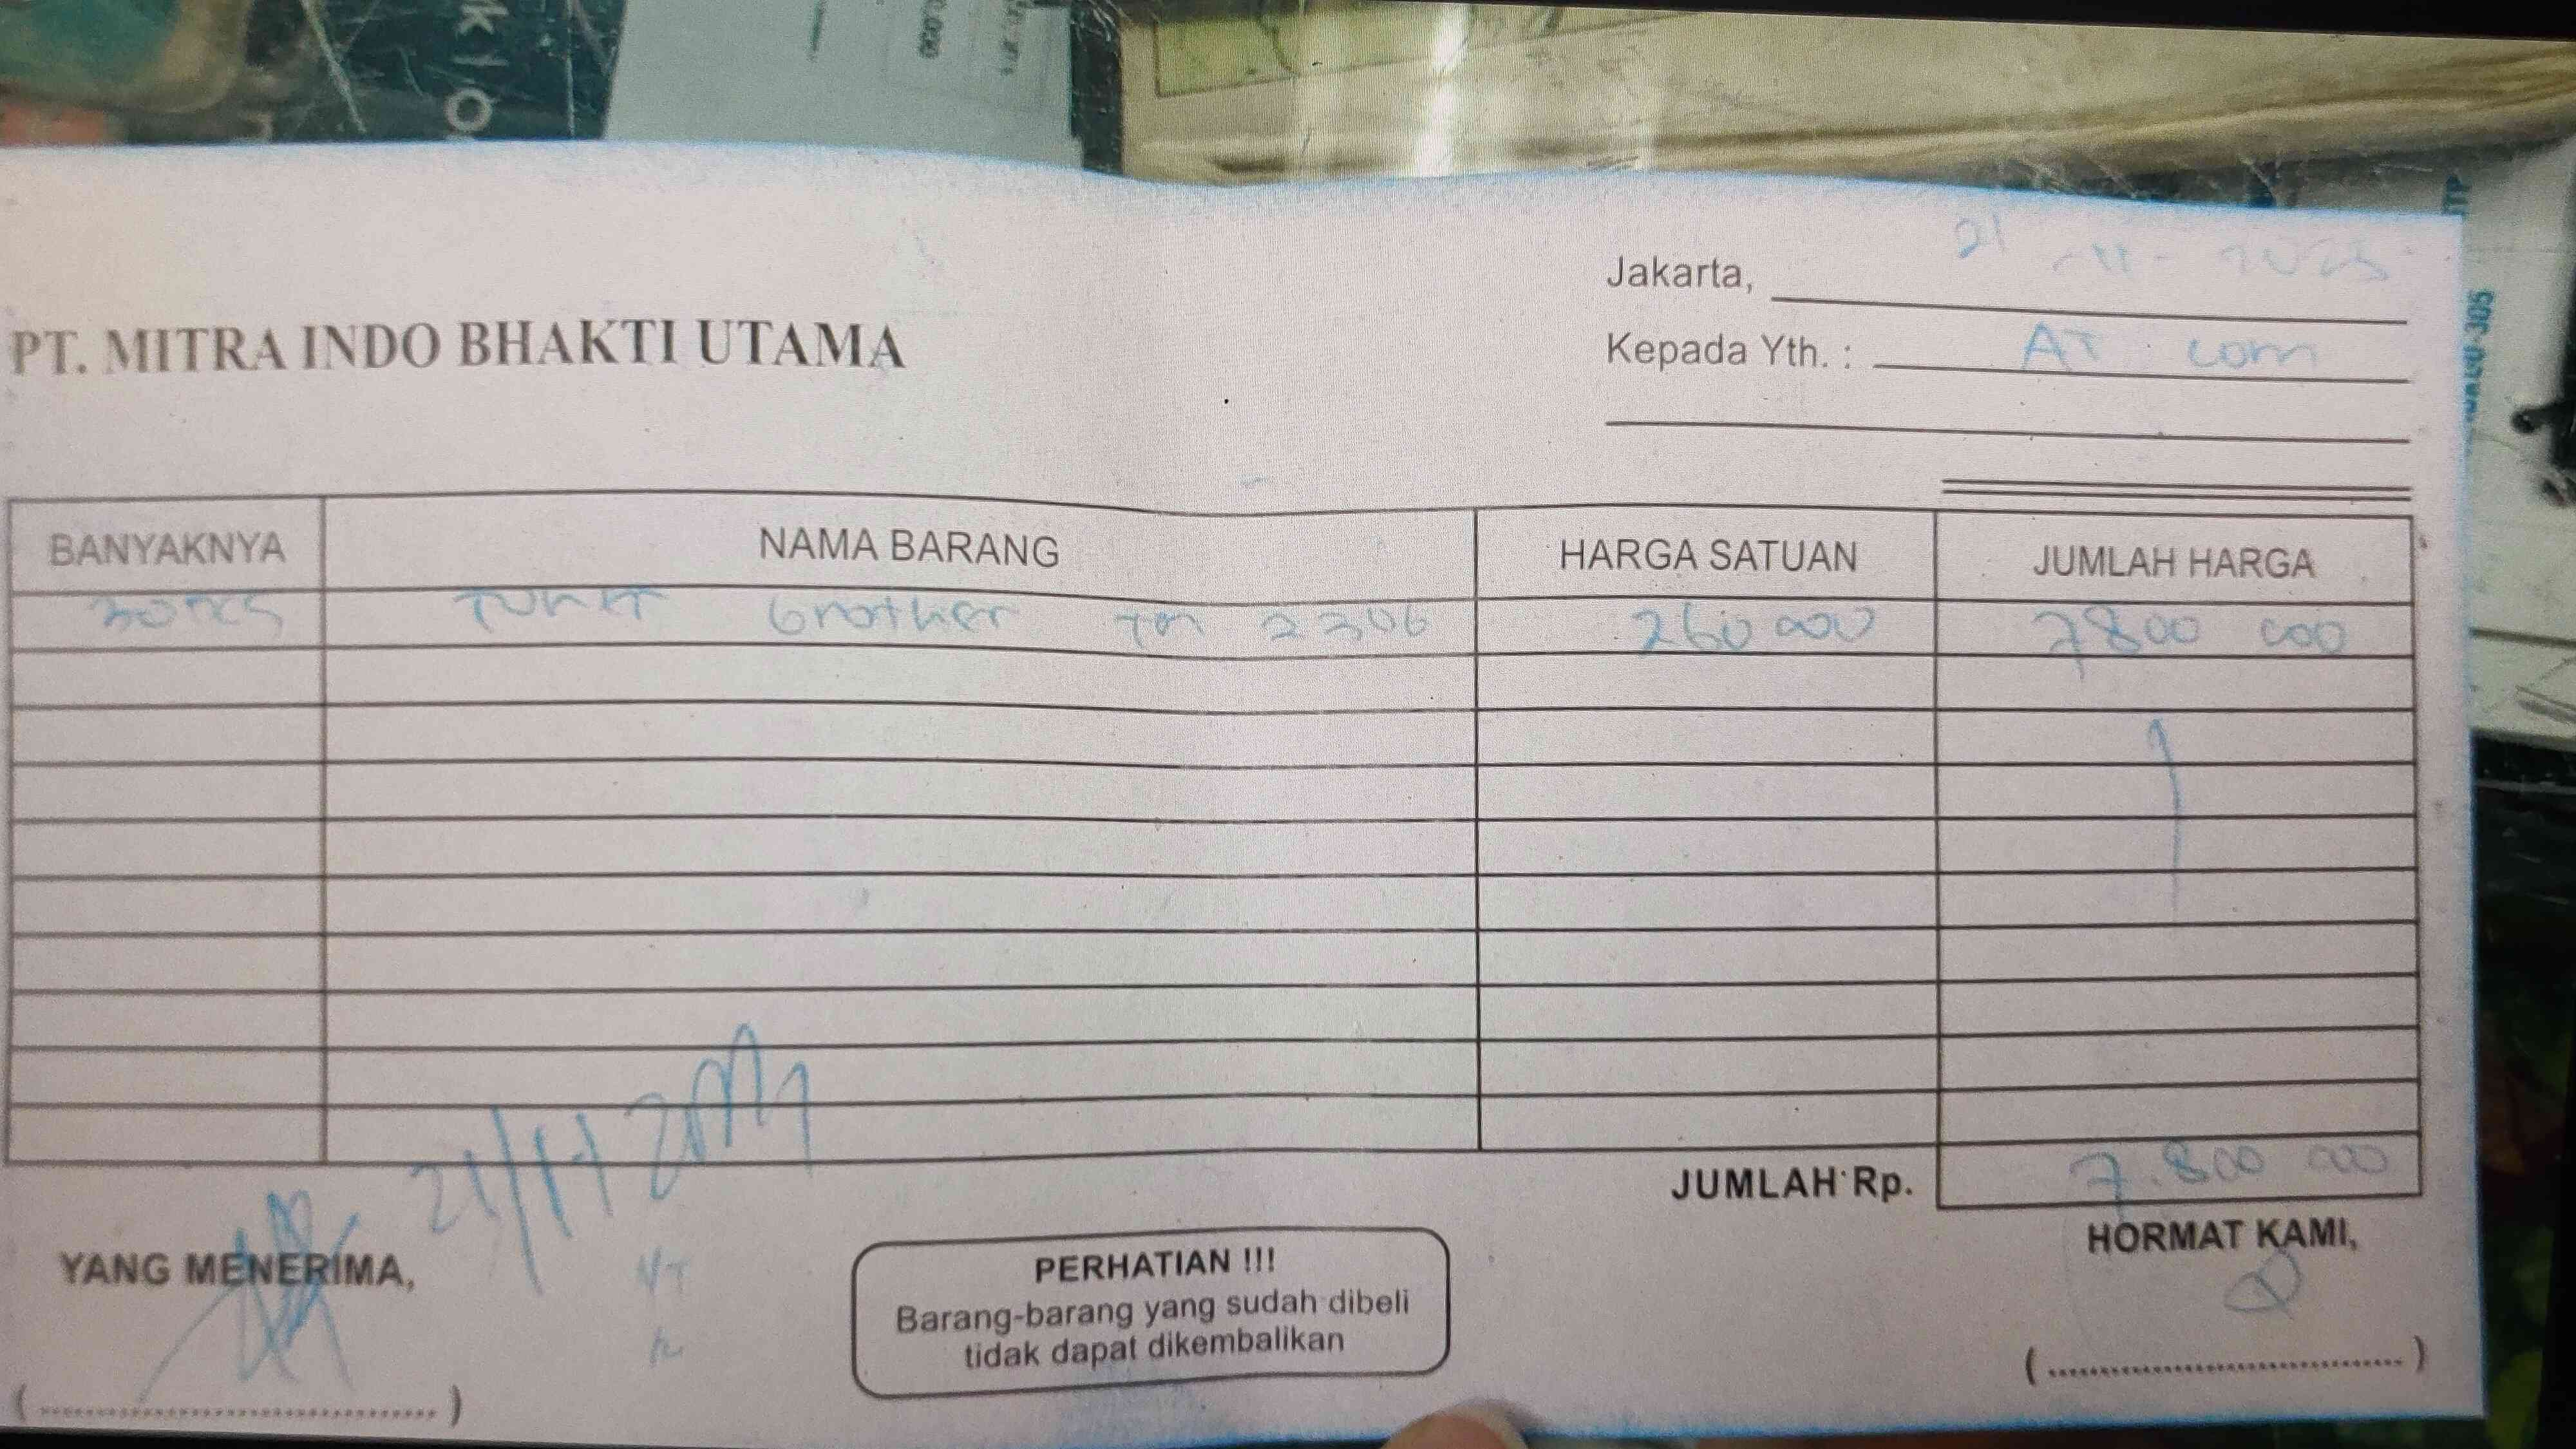 PT. MITRA INDO BHAKTI UTAMA
Jakarta, 21 - 11 - 2025
Kepada Yth. : AT com
BANYAKNYA NAMA BARANG HARGA SATUAN JUMLAH HARGA
brother 2306 260 000 7800 000
JUMLAH Rp. 7.800 000
21/11
YANG MENERIMA,
HORMAT KAMI,
PERHATIAN !!!
Barang-barang yang sudah dibeli
tidak dapat dikembalikan
(....................................)
(....................................)